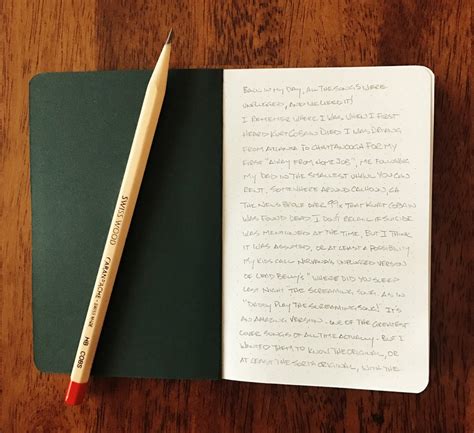 SWISS WOOD
CARAN D'ACHE
SWISS MADE
HB
BACK IN MY DAY, ALL THE SONGS WERE
UNPLUGGED, AND WE LIKED IT!
I REMEMBER WHERE I WAS WHEN I FIRST
HEARD KURT COBAIN DIED. I WAS DRIVING
FROM ATLANTA TO CHATTANOOGA FOR MY
FIRST "AWAY FROM HOME JOB",
MY DAD IN THE SMALLEST UHAUL YOU CAN
RENT, SOMEWHERE AROUND CALHOUN, GA
THE NEWS BROKE OVER 99X THAT KURT COBAIN
WAS FOUND DEAD. I DON'T RECALL IF SUICIDE
WAS MENTIONED AT THE TIME. BUT I THINK
IT WAS ASSUMED, OR AT LEAST A POSSIBILITY
MY KIDS CALL NIRVANA'S UNPLUGGED VERSION
OF LEAD BELLY'S "WHERE DID YOU SLEEP
LAST NIGHT" THE SCREAMING SONG. AS IN
"DADDY PLAY THE SCREAMING SONG!" IT'S
AN AMAZING VERSION - ONE OF THE GREATEST
COVER SONGS OF ALL TIME ACTUALLY. BUT I
WANTED THEM TO KNOW THE ORIGINAL, OR
AT LEAST THE ORIGINAL, WITH THE